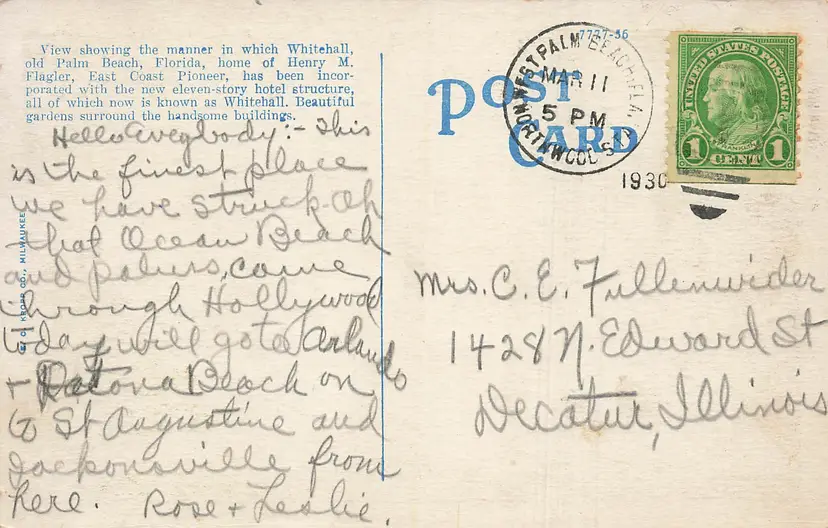 View showing the manner in which Whitehall,
old Palm Beach, Florida, home of Henry M.
Flagler, East Coast Pioneer, has been incor-
porated with the new eleven-story hotel structure,
all of which now is known as Whitehall. Beautiful
gardens surround the handsome buildings.
Hello Everybody:- This
is the finest place
we have struck. Oh
that Ocean Beach
and palms, came
through Hollywood
today will go to Orlando
+ Datona Beach on
to St Augustine and
Jacksonville from
here. Rose + Leslie.
E. C. KROPP CO., MILWAUKEE
7727-36
POST
CARD
WEST PALM BEACH, FLA.
MAR 11
5 PM
NORTHWOOD STA
1930
UNITED STATES POSTAGE
FRANKLIN
1 CENT 1
Mrs. C. E. Fullenwider
1428 N. Edward St
Decatur, Illinois